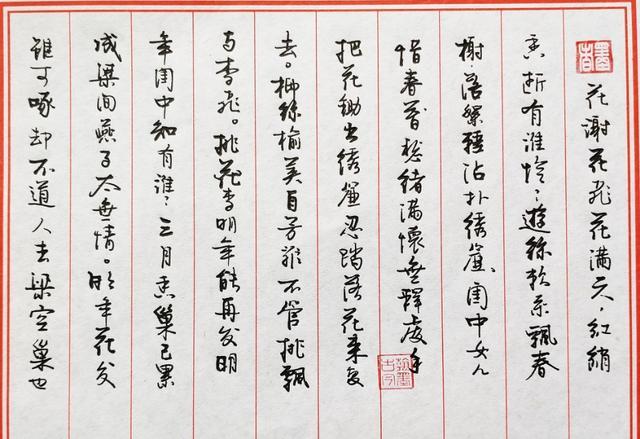 墨香
花谢花飛花满天,红绡
香断有谁怜?遊絲软系飄春
榭,落絮轻沾扑绣簾,闺中女儿
惜春暮,愁绪满懷無釋處,手
把花锄出绣簾,忍踏落花来复
去。柳絲榆荚自芳菲不管桃飄
与李飛。桃花李明年能再发明
年闺中知有谁?三月香巢已累
成梁间燕子太無情。明年花发
雖可啄却不道人去梁空巢也